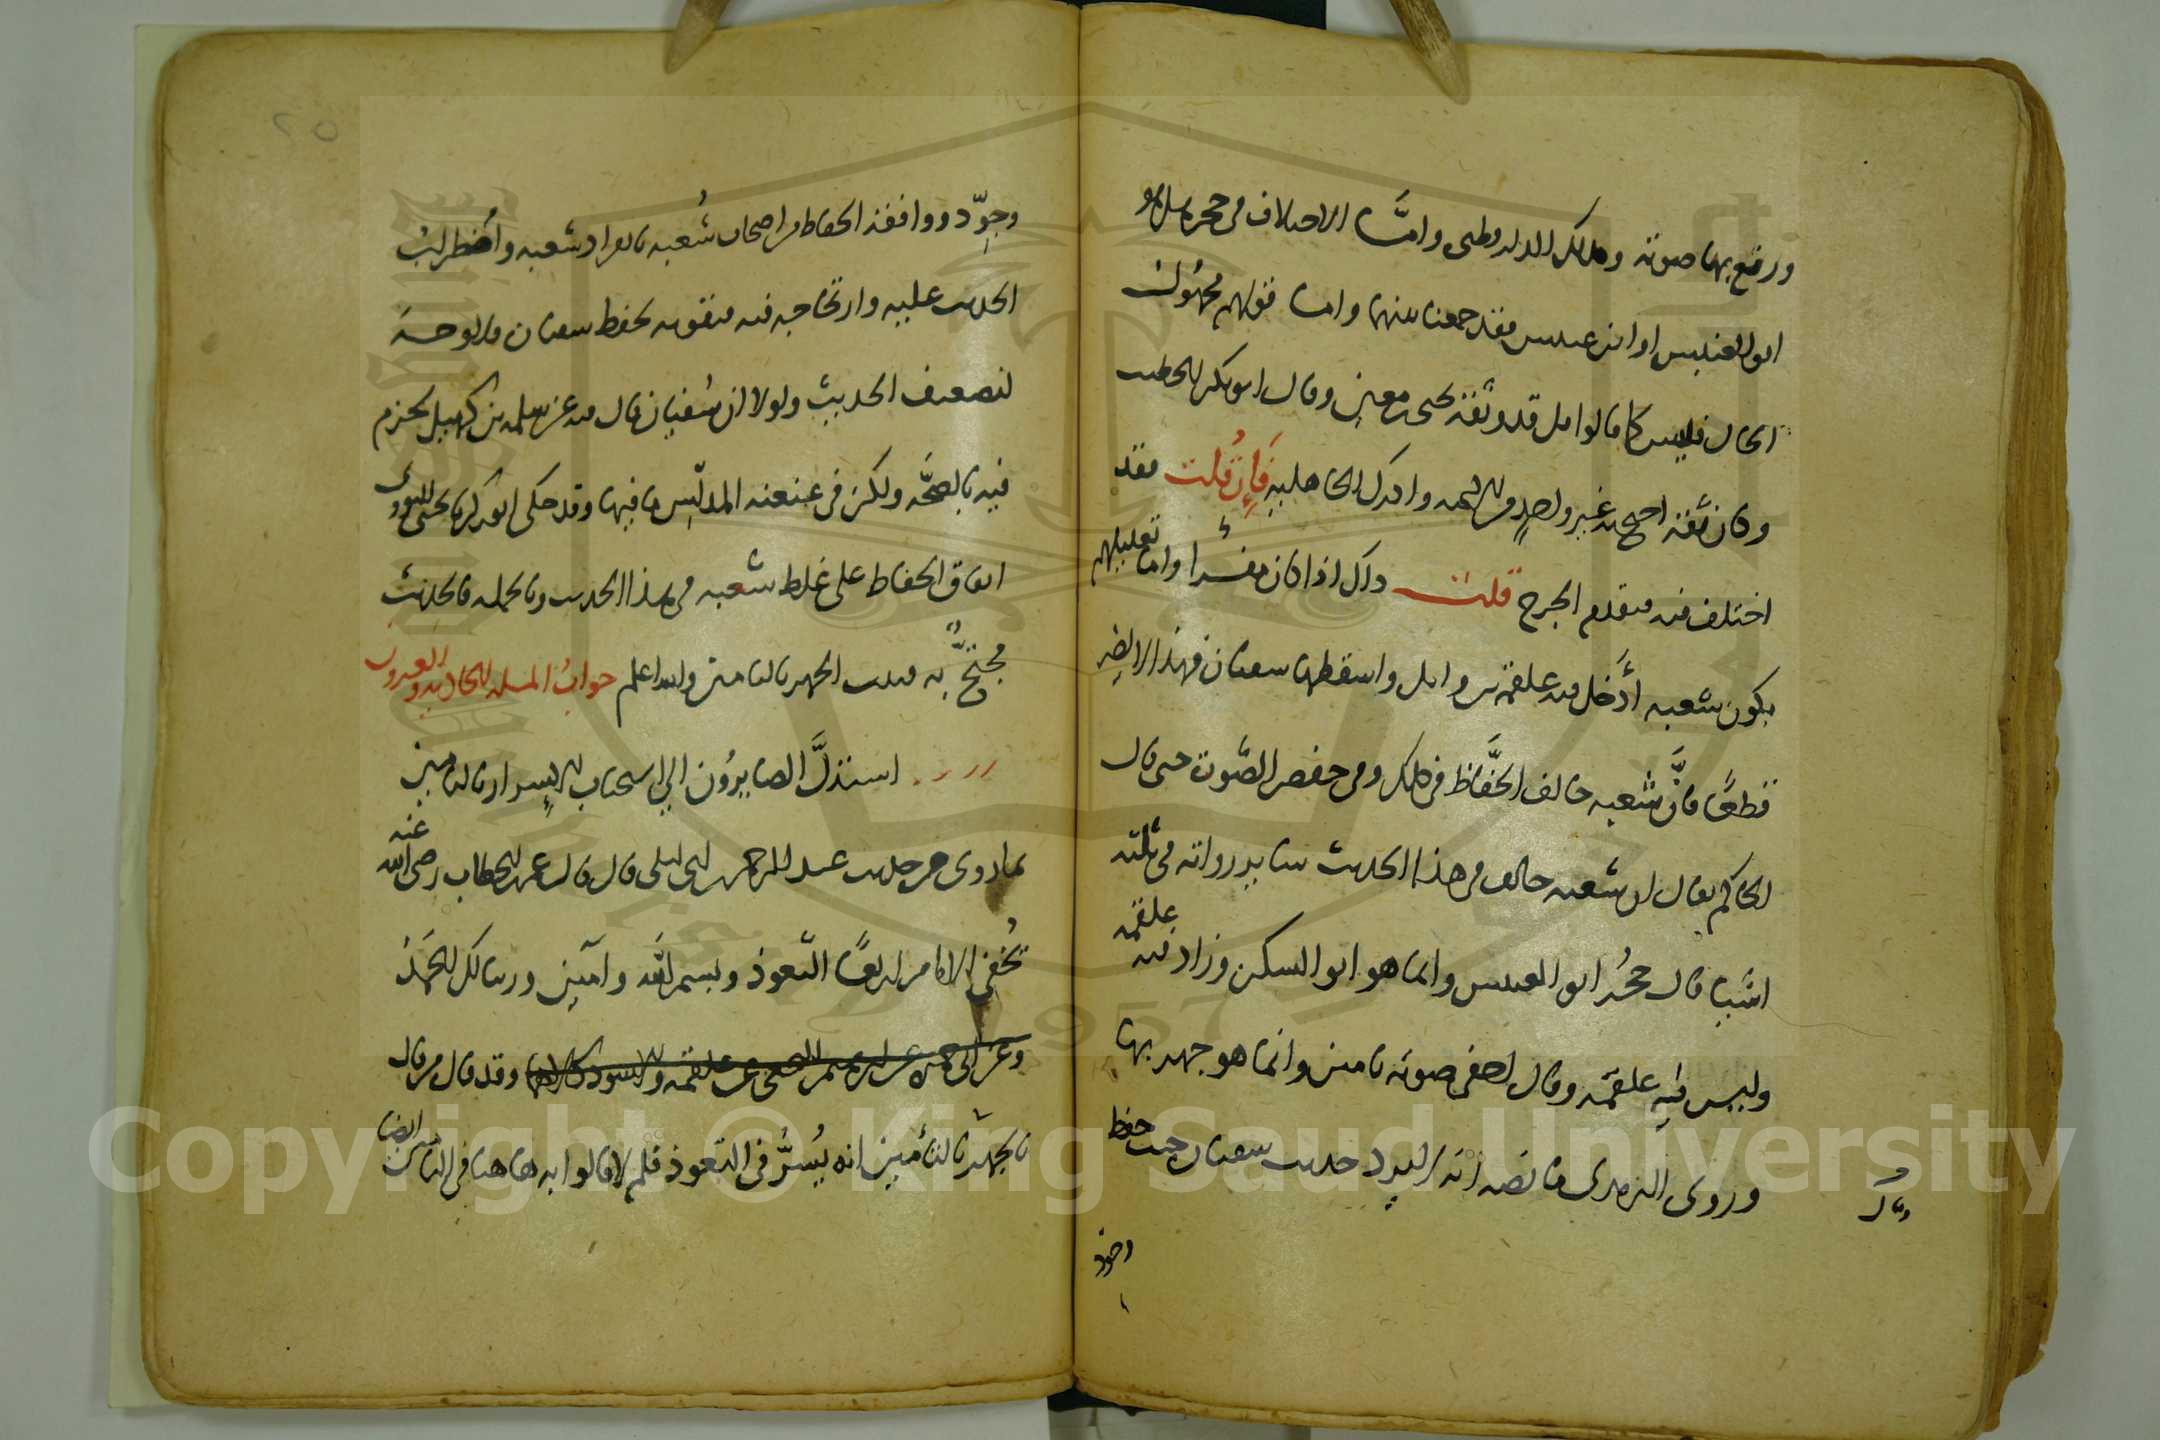 ورفع بها صوته وكذلك الدارقطنى وامَّا الاختلاف فى حجر هل هو
ابو العنبس او ابن عنبس فقد جمعنا بينهما واما قولهم مجهول
الحال فليس كما قالوا بل قد وثقه يحيى بن معين وقال ابو بكر الخطيب
وكان ثقة احتج به غير واحدٍ من الايمه وادرك الجاهلية فَإِنْ قُلت فقد
اختلف فيه فيقدم الجرح قلت ذاك اذا كان مفسَّرا واما تعليلهم
بكون شعبه أَدْخَل فيه علقمة بن وايل واسقطها سفيان فهذا لا يضر
قطعًا فانَّ شعبه خالف الحُفَّاظ فى ذلك وفى خفض الصَّوت حتى قال
الحاكم يقال ان شعبه خالف فى هذا الحديث ساير رواته فى ثلثه
اشيا قال حُجْر ابو العنبس وانما هو ابو السكن وزاد فيه علقمه
وليس فيه علقمه وقال اخفى صوته بامين وانما هو جهر بها
وروى الترمذى ما نصه انه لم يرد حديث سفيان حيث حفظ
وجود
وجوّد ووافقه الحفاظ من اصحاب شُعبه بانفراد شعبه واُضطراب
الحديث عليه وارتجاجه فيه فيقويه بحفظ سفيان فلا وجه
لتضعيف الحديث ولولا ان سُفيان قال فيه عن سلمه بن كهيل لجزم
فيه بالصحَّه ولكن فى عنعنه المدلّس ما فيها وقد حكى ابو زكريا يحيى النووى
اتفاق الحفاظ على غلط شعبه فى هذا الحديث وبالجمله فالحديث
مُحتجٌّ به فثبت الجهر بالتامين والله اعلم جوابُ المسله الحاديه والعشرون
استدلَّ الصايرُون الى استحباب الاِسرار بالتامين
بما روى من حديث عبد الرحمن بن ابى ليلى قال قال عمر بن الخطاب رضى الله عنه
يُخفى الامام اربعًا التعوذ وبسم الله وآمين وربنا لك الحَمدُ
وعن ابى حمزه عن ابرهيم النخعى عن علقمه والاسود كلاهما وقد قال من قال
بالجهر بالتأمين انه يُسِرُّ فى التعوذ فلم لا قالوا به هاهنا فى التامين ايضا